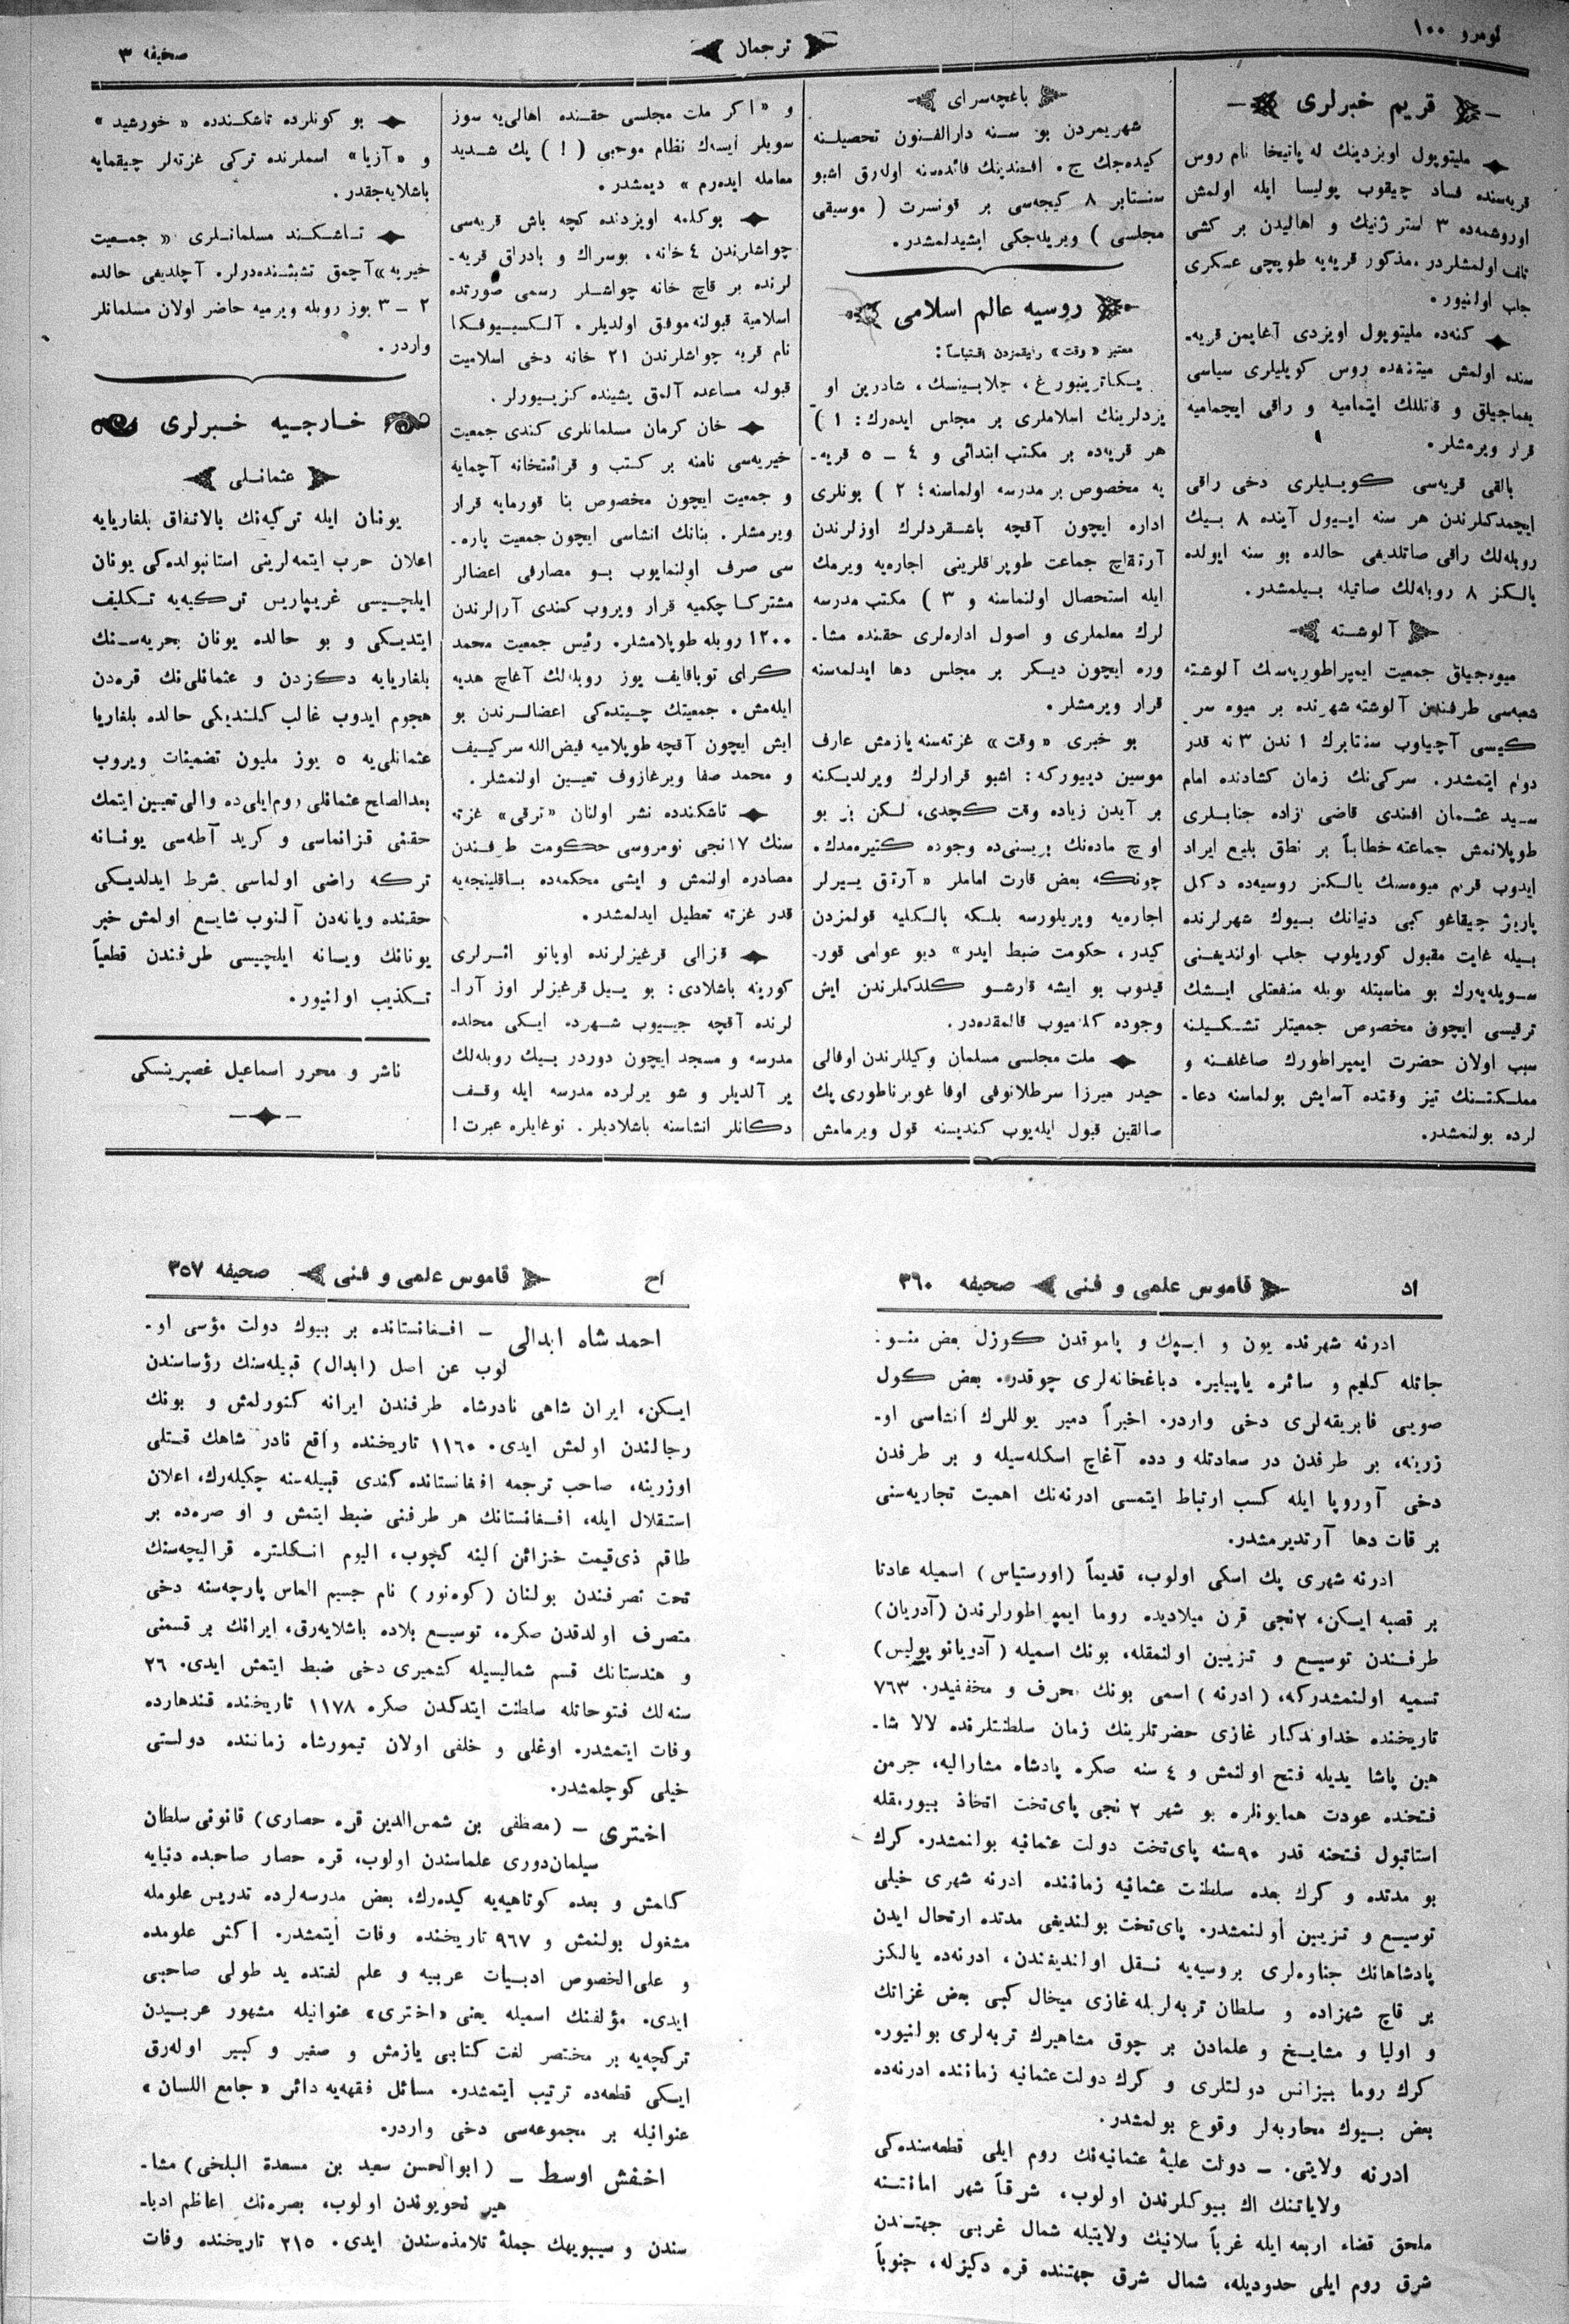 نومرو ١٠٠
ترجمان
صحیفه ٣
قریم خبرلری
ملیتوپول اویزدینك له پاتیخا نام روس
قریه‌سنده فساد چیقوب پولیسا ایله اولمش
اوروشمه‌ده ٣ استرژنیك و اهالیدن بر كشی
تلف اولمشلردر. مذكور قریه‌یه طوپچی عسكری
جلب اولنیور.
كنه‌ده ملیتوپول اویزدی آغایمن قریه‌-
سنده اولمش میتنغده روس كویلیلری سیاسی
یغماجیلق و قتللك ایتمامیه و راقی ایچمامیه
قرار ویرمشلر.
بالقی قریه‌سی كویلیلری دخی راقی
ایچمدكلرندن هر سنه اییول آینده ٨ بیك
روبله‌لك راقی صاتلدیغی حالده بو سنه ایولده
یالكز ٨ روبله‌لك صاتیله بیلمشدر.
آلوشته
میوه‌جیلق جمعیت ایمپراطوریه‌سنك آلوشته
شعبه‌سی طرفندن آلوشته شهرنده بر میوه سر-
كیسی آچیلوب سنتابرك ١ ندن ٣ نه قدر
دوام ایتمشدر. سركی‌نك زمان كشادنده امام
سید عثمان افندی قاضی زاده جنابلری
طوپلانمش جماعته خطاباً بر نطق بلیغ ایراد
ایدوب قریم میوه‌سنك یالكز روسیه‌ده دكل
پاریژ چیقاغو كبی دنیانك بیوك شهرلرنده
بیله غایت مقبول كوریلوب جلب اولندیغنی
سویله‌یه‌رك بو مناسبتله بویله منفعتلی ایشك
ترقیسی ایچون مخصوص جمعیتلر تشكیلنه
سبب اولان حضرت ایمپراطورك صاغلغنه و
مملكتنك تیز وقتده آسایش بولماسنه دعا-
لرده بولنمشدر.
باغچه‌سرای
شهریمزدن بو سنه دارالفنون تحصیلنه
كیده‌جك ج. افندینك فائده‌سنه اوله‌رق اشبو
سنتابر ٨ كیجه‌سی بر قونسرت ( موسیقی
مجلسی ) ویریله‌جكی ایشیدلمشدر.
روسیه عالم اسلامی
معتبر «وقت» رفیقمزدن اقتباساً:
یكاترینبورغ، چلابینسك، شادرین او
یزدلرینك اسلاملری بر مجلس ایده‌رك: ١)
هر قریه‌ده بر مكتب ابتدائی و ٤ – ٥ قریه‌-
یه مخصوص بر مدرسه اولماسنه؛ ٢) بونلری
اداره ایچون آقچه باشقردلرك اوزلرندن
آرتقاچ جماعت طوپراقلرینی اجاره‌یه ویرمك
ایله استحصال اولنماسنه و ٣) مكتب مدرسه
لرك معلملری و اصول اداره‌لری حقنده مشا-
وره ایچون دیكر بر مجلس دها ایدلمه‌سنه
قرار ویرمشلر.
بو خبری «وقت» غزته‌سنه یازمش عارف
موسین دیبوركه: اشبو قرارلرك ویرلدیكنه
بر آیدن زیاده وقت كچدی، لكن بز بو
اوچ ماده‌نك بریسنی‌ده وجوده كتیره‌مدك.
چونكه بعض قارت اماملر «آرتق ییرلر
اجاره‌یه ویریلورسه بلكه بالكلیه قولمزدن
كیدر، حكومت ضبط ایدر» دیو عوامی قور-
قیدوب بو ایشه قارشو كلدكلرندن ایش
وجوده كلمیوب قالمقده‌در.
ملت مجلسی مسلمان وكیللرندن اوفالی
حیدر میرزا سرطلانوفی اوفا غوبرناطوری پك
صالقین قبول ایله‌یوب كندیسنه قول ویرمامش
و «اكر ملت مجلسی حقنده اهالی‌یه سوز
سویلر ایسه‌ك نظام موجبی ( ! ) پك شدید
معامله ایده‌رم» دیمشدر.
بوكلمه اویزدنده كچه باش قریه‌سی
چواشلرندن ٤ خانه، بوسراك و بادراق قریه-
لرنده بر قاچ خانه چواشلر رسمی صورتده
اسلامیة قبولنه موفق اولدیلر. آلكسییوفكا
نام قریه چواشلرندن ٢١ خانه دخی اسلامیت
قبولنه مساعده آلمق پشینده كزییورلر.
خان كرمان مسلمانلری كندی جمعیت
خیریه‌سی نامنه بر كتب و قرائتخانه آچمایه
و جمعیت ایچون مخصوص بنا قورمایه قرار
ویرمشلر. بنانك انشاسی ایچون جمعیت پاره-
سی صرف اولنمایوب بو مصارفی اعضالر
مشتركا چكمیه قرار ویروب كندی آرالرندن
١٢٠٠ روبله طوپلامشلر. رئیس جمعیت محمد
كرای توباقایف یوز روبله‌لك آغاچ هدیه
ایله‌مش. جمعیتك چیتده‌كی اعضالرندن بو
ایش ایچون آقچه طوپلامیه فیض‌الله سركییف
و محمد صفا ویرغازوف تعیین اولنمشلر.
تاشكندده نشر اولنان «ترقی» غزته
سنك ١٧نجی نومروسی حكومت طرفندن
مصادره اولنمش و ایشی محكمه‌ده باقلینجه‌یه
قدر غزته تعطیل ایدلمشدر.
قزالی قرغیزلرنده اویانو اثرلری
كورینه باشلادی: بو ییل قرغیزلر اوز آرا-
لرنده آقچه جییوب شهرده ایكی محلده
مدرسه و مسجد ایچون دوردر بیك روبله‌لك
یر آلدیلر و شو یرلرده مدرسه ایله وقف
دكانلر انشاسنه باشلادیلر. نوغایلره عبرت!
بو كونلرده تاشكندده «خورشید»
و «آزیا» اسملرنده تركی غزته‌لر چیقمایه
باشلایه‌جقدر.
تاشكند مسلمانلری «جمعیت
خیریه» آچمق تشبثنده‌درلر. آچلدیغی حالده
٢ – ٣ یوز روبله ویرمیه حاضر اولان مسلمانلر
واردر.
خارجیه خبرلری
عثمانلی
یونان ایله تركیه‌نك بالاتفاق بلغاریایه
اعلان حرب ایتمه‌لرینی استانبولده‌كی یونان
ایلچیسی غریپاریس تركیه‌یه تكلیف
ایتدیكی و بو حالده یونان بحریه‌سنك
بلغاریایه دكزدن و عثمانلی‌نك قره‌دن
هجوم ایدوب غالب كلندیكی حالده بلغاریا
عثمانلی‌یه ٥ یوز ملیون تضمینات ویروب
بعدالصلح عثمانلی روم‌ایلی‌ده والی تعیین ایتمك
حقنی قزانماسی و كرید آطه‌سی یونانه
تركه راضی اولماسی شرط ایدلدیكی
حقنده ویانه‌دن آلنوب شایع اولمش خبر
یونانك ویسانه ایلچیسی طرفندن قطعیاً
تكذیب اولنیور.
ناشر و محرر اسماعیل غصپرینسكی
اد
قاموس علمی و فنی
صحیفه ٣٦٠
ادرنه شهرنده یون و ایپك و پاموقدن كوزل بعض منسو-
جاتله كلیم و سائره یاپیلیر. دباغخانه‌لری چوقدر. بعض كول
صویی فابریقه‌لری دخی واردر. اخیراً دمیر یوللرك انشاسی او-
زرینه، بر طرفدن در سعادتله و دده آغاچ اسكله‌سیله و بر طرفدن
دخی آوروپا ایله كسب ارتباط ایتمسی ادرنه‌نك اهمیت تجاریه‌سنی
بر قات دها آرتدیرمشدر.
ادرنه شهری پك اسكی اولوب، قدیماً (اورستیاس) اسمیله عادتا
بر قصبه ایكن، ٢نجی قرن میلادیده روما ایمپراطورلرندن (آدریان)
طرفندن توسیع و تزیین اولنمقله، بونك اسمیله (آدریانوپولیس)
تسمیه اولنمشدركه، (ادرنه) اسمی بونك محرف و مخففیدر. ٧٦٣
تاریخنده خداوندكار غازی حضرتلرینك زمان سلطنتلرنده لالا شا-
هین پاشا یدیله فتح اولنمش و ٤ سنه صكره پادشاه مشارالیه، جرمن
فتحنده عودت همایونلره بو شهر ٢ نجی پای‌تخت اتخاذ بیورمقله
استانبول فتحنه قدر ٩٠سنه پای‌تخت دولت عثمانیه بولنمشدر. كرك
بو مدتده و كرك بعده سلطنت عثمانیه زماننده ادرنه شهری خیلی
توسیع و تزیین اولنمشدر. پای‌تخت بولندیغی مدتده ارتحال ایدن
پادشاهانك جنازه‌لری بروسیه‌یه نقل اولندیغندن، ادرنه‌ده یالكز
بر قاچ شهزاده و سلطان تربه‌لریله غازی میخال كبی بعض غزانك
و اولیا و مشایخ و علمادن بر چوق مشاهیرك تربه‌لری بولنیور.
كرك روما بیزانس دولتلری و كرك دولت عثمانیه زماننده ادرنه‌ده
بعض بیوك محاربه‌لر وقوع بولمشدر.
ادرنه ولایتی. – دولت علیهٔ عثمانیه‌نك روم ایلی قطعه‌سنده‌كی
ولایاتنك اك بیوكلرندن اولوب، شرقاً شهر امانتنه
ملحق قضاء اربعه ایله غرباً سلانیك ولایتیله شمال غربی جهتندن
شرق روم ایلی حدودیله، شمال شرق جهتنده قره دكیزله، جنوباً
اح
قاموس علمی و فنی
صحیفه ٣٥٧
احمد شاه ابدالی – افغانستانده بر بیوك دولت مؤسی او-
لوب عن اصل (ابدال) قبیله‌سنك رؤساسندن
ایكن، ایران شاهی نادرشاه طرفندن ایرانه كتورلمش و بونك
رجالندن اولمش ایدی. ١١٦٠ تاریخنده واقع نادر شاهك قتلی
اوزرینه، صاحب ترجمه افغانستانده كندی قبیله‌سنه چكیله‌رك، اعلان
استقلال ایله، افغانستانك هر طرفنی ضبط ایتمش و او صره‌ده بر
طاقم ذی‌قیمت خزائن الینه كچوب، الیوم انكلتره قرالیچه‌سنك
تحت تصرفندن بولنان (كوه‌نور) نام جسیم الماس پارچه‌سنه دخی
متصرف اولدقدن صكره، توسیع بلاده باشلایه‌رق، ایرانك بر قسمنی
و هندستانك قسم شمالیسیله كشمیری دخی ضبط ایتمش ایدی. ٢٦
سنه‌لك فتوحاتله سلطنت ایتدكدن صكره ١١٧٨ تاریخنده قندهارده
وفات ایتمشدر. اوغلی و خلفی اولان تیمورشاه زماننده دولتی
خیلی كوچلمشدر.
اختری – (مصطفی بن شمس‌الدین قره حصاری) قانونی سلطان
سیلمان دوری علماسندن اولوب، قره حصار صاحبده دنیایه
كلمش و بعده كوتاهیه‌یه كیده‌رك، بعض مدرسه‌لرده تدریس علومله
مشغول بولنمش و ٩٦٧ تاریخنده وفات ایتمشدر. اكثر علومده
و علی‌الخصوص ادبیات عربیه و علم لغتده ید طولی صاحبی
ایدی. مؤلفنك اسمیله یعنی «اختری» عنوانیله مشهور عربیدن
تركچه‌یه بر مختصر لغت كتابی یازمش و صغیر و كبیر اوله‌رق
ایكی قطعه‌ده ترتیب ایتمشدر. مسائل فقهیه‌یه دائر «جامع اللسان»
عنوانیله بر مجموعه‌سی دخی واردر.
اخفش اوسط – (ابوالحسن سعید بن مسعدة البلخی) مشا-
هیر نحویوندن اولوب، بصره‌نك اعاظم ادبا-
سندن و سیبویهك جملهٔ تلامذه‌سندن ایدی. ٢١٥ تاریخنده وفات